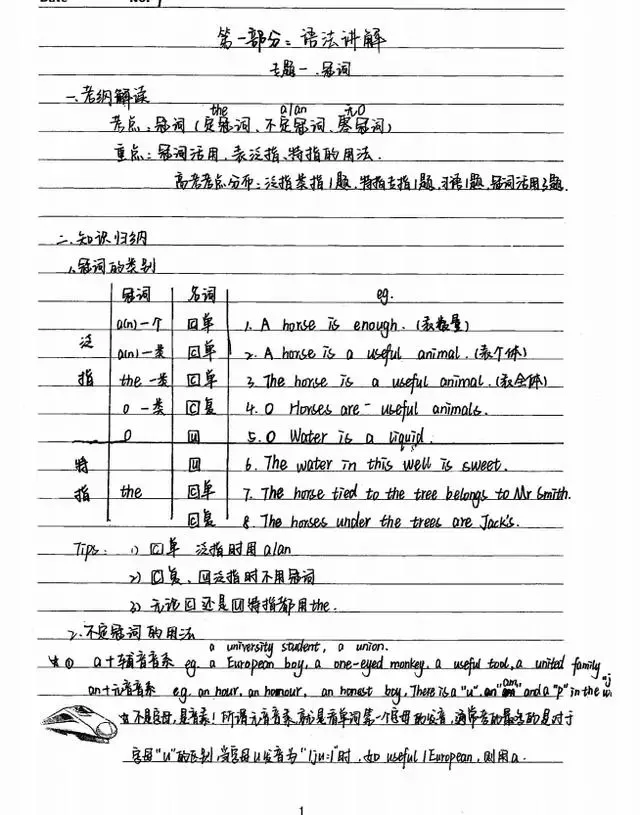 Date No. 1
第一部分:语法讲解
专题一.冠词
一.考纲解读
the a/an 无0
考点:冠词(定冠词、不定冠词、零冠词)
重点:冠词活用、表泛指、特指的用法.
高考考点分布:泛指类指1题,特指专指1题,习语1题,冠词活用3题.
二.知识归纳
1.冠词的类别
冠词 名词 eg.
泛指
a(n)一个 C单 1. A horse is enough.(表数量)
a(n)一类 C单 2. A horse is a useful animal.(表个体)
the 一类 C单 3. The horse is a useful animal.(表全体)
0 一类 C复 4. 0 Horses are useful animals.
0 U 5. 0 Water is a liquid.
特指
U 6. The water in this well is sweet.
the C单 7. The horse tied to the tree belongs to Mr Smith.
C复 8. The horses under the trees are Jack's.
Tips: 1) C单 泛指时用a/an
2) C复、U泛指时不用冠词
3) 无论C还是U特指都用the.
2.不定冠词的用法
a university student, a union.
★① a+辅音音素 eg. a European boy, a one-eyed monkey, a useful tool, a united family
an+元音音素 e.g. an hour, an honour, an honest boy, There is a "u", an "m" and a "p" in the
★不是字母,是音素!所谓元音音素,就是看单词第一个字母的发音,通常考的最多的是对于
字母"u"的区别,当字母u发音为"/ju:/"时,如 useful/European,则用a.
1